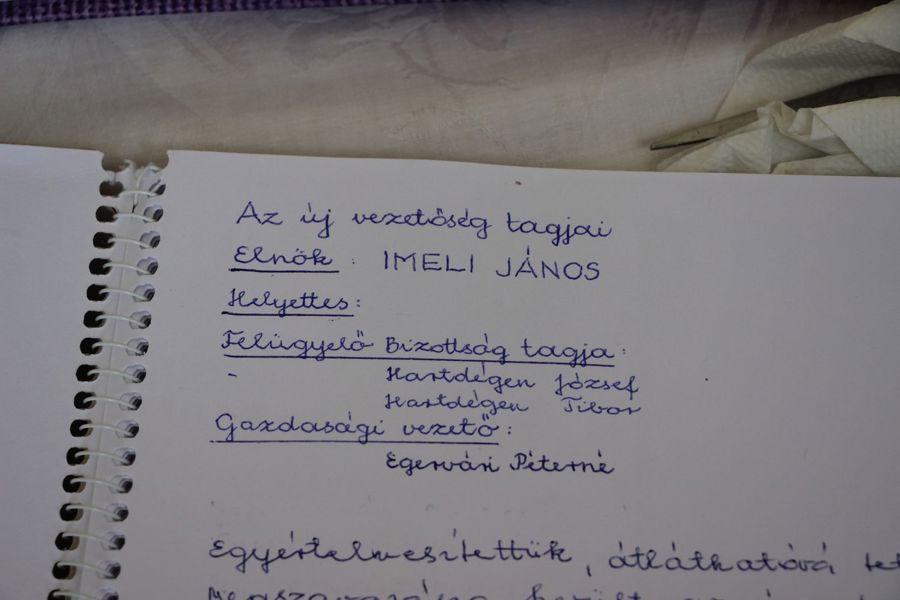 Az új vezetőség tagjai
Elnök : IMELI JÁNOS
Helyettes:
Felügyelő Bizottság tagja:
- Hartdégen József
Hartdégen Tibor
Gazdasági vezető :
Egervári Péterné
Egyértelmesítettük, átláthatóvá